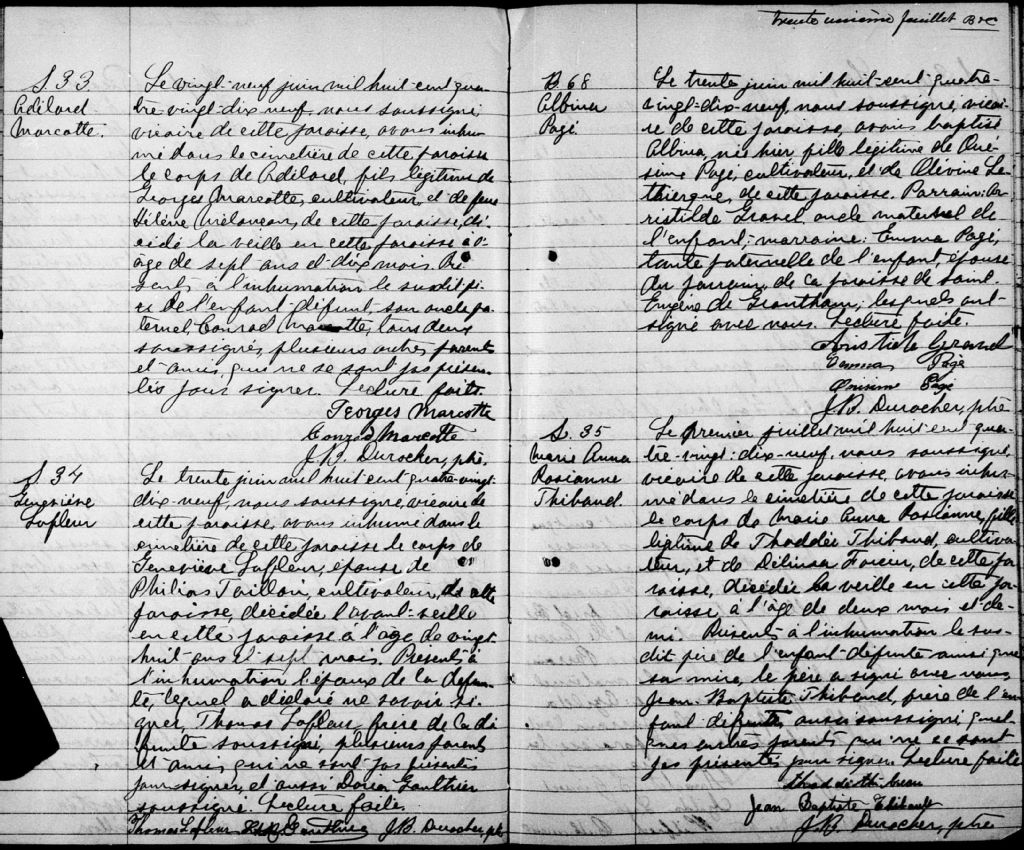 S 33
Adélard
Marcotte.
Le vingt-neuf juin mil huit cent qua-
tre-vingt-dix neuf, nous soussigné,
vicaire de cette paroisse, avons inhu-
mé dans le cimetière de cette paroisse
le corps de Adélard, fils légitime de
Georges Marcotte, cultivateur, et de feue
Hélène Melançon, de cette paroisse, dé-
cédé la veille en cette paroisse à l'
âge de sept ans et dix mois. Pré-
sents à l'inhumation le susdit pè-
re de l'enfant défunt, son oncle pa-
ternel Conrad Marcotte, tous deux
soussignés, plusieurs autres parents
et amis, qui ne se sont pas présen-
tés pour signer. Lecture faite.
Georges Marcotte
Conrad Marcotte
J.B. Durocher, ptre.
S 34
Geneviève
Lafleur
Le trente juin mil huit cent quatre-vingt-
dix-neuf, nous soussigné, vicaire de
cette paroisse, avons inhumé dans le
cimetière de cette paroisse le corps de
Geneviève Lafleur, épouse de
Philias Taillon, cultivateur, de cette
paroisse, décédée l'avant-veille
en cette paroisse à l'âge de vingt-
huit ans et sept mois. Présents à
l'inhumation l'époux de la défun-
te, lequel a déclaré ne savoir si-
gner, Thomas Lafleur frère de la dé-
funte soussigné, plusieurs parents
et amis, qui ne sont pas présentés
pour signer, et aussi Gauthier
soussigné. Lecture faite.
Thomas Lafleur Gauthier J.B. Durocher, ptre
trente unième feuillet
B 68
Albina
Pagé.
Le trente juin mil huit-cent-quatre-
vingt-dix-neuf, nous soussigné, vicai-
re de cette paroisse, avons baptisé
Albina, née hier fille légitime de Oné-
sime Pagé, cultivateur, et de Olévine Le-
thiergne, de cette paroisse. Parrain: A-
ristilde Gravel oncle maternel de
l'enfant; marraine: Emma Pagé,
tante paternelle de l'enfant, épouse
du parrain, de la paroisse de Saint.
Eugène de Grantham; lesquels ont
signé avec nous. Lecture faite.
Aristide Gravel
Emma Pagé
Onisim Pagé
J.B. Durocher, ptre
S. 35
Marie Anna
Rosianne
Thibaud.
Le premier juillet mil huit cent qua-
tre-vingt-dix-neuf, nous soussigné,
vicaire de cette paroisse, avons inhu-
mé dans le cimetière de cette paroisse
le corps de Marie Anna Rosianne, fille
légitime de Thaddée Thibaud, cultiva-
teur, et de Délima, de cette pa-
roisse, décédée la veille en cette pa-
roisse à l'âge de deux mois et de-
mi. Présents à l'inhumation le sus-
dit père de l'enfant défunte ainsi que
sa mère, le père a signé avec nous
Jean-Baptiste Thibaud, frère de l'en-
fant défunte aussi soussigné, quel-
ques autres parents qui ne se sont
pas présentés pour signer. Lecture faite
Jean Baptiste Thibault
J.B. Durocher, ptre